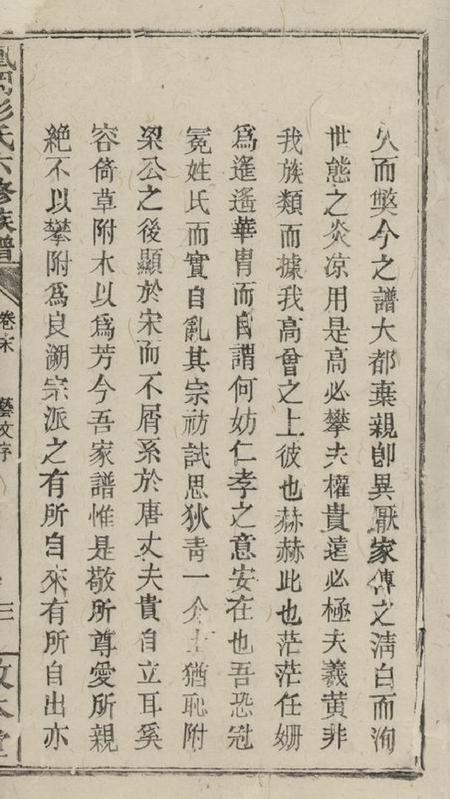 久而獘今之譜大都棄親卽異厭家傳之淸白而洵
世態之炎凉用是高必攀夫權貴遠必極夫羲黃非
我族類而據我高曾之上彼也赫赫此也茫茫任姗
爲遙遙華胄而自謂何妨仁孝之意安在也吾恐冠
冕姓氏而實自亂其宗祊試思狄靑一介士猶恥附
梁公之後顯於宋而不屑系於唐丈夫貴自立耳奚
容倚草附木以爲芳今吾家譜惟是敬所尊愛所親
絶不以攀附爲良溯宗派之有所自來有所自出亦
彭氏六修族譜
卷末
藝文序
三
敦本堂